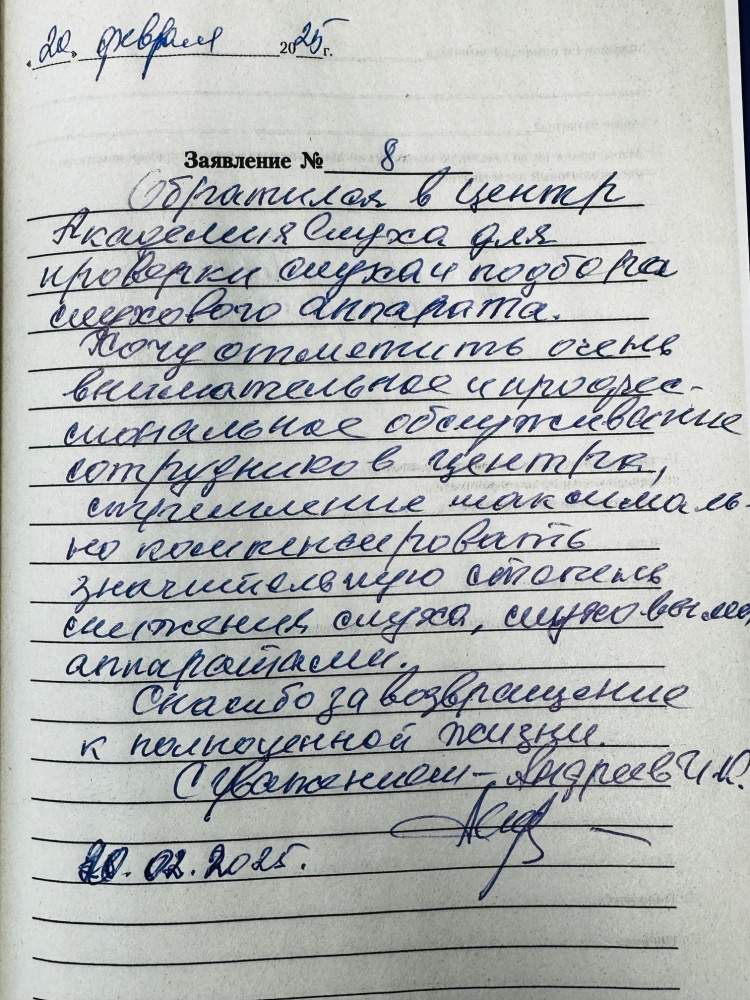 «20» февраля 2025 г.
Заявление № 8
Обратился в центр
Академия Слуха для
проверки слуха и подбора
слухового аппарата.
Хочу отметить очень
внимательное и профес-
сиональное обслуживание
сотрудников центра,
стремление максималь-
но компенсировать
значительную степень
снижения слуха, слуховыми
аппаратами.
Спасибо за возвращение
к полноценной жизни.
С уважением – Андреев
20.02.2025.